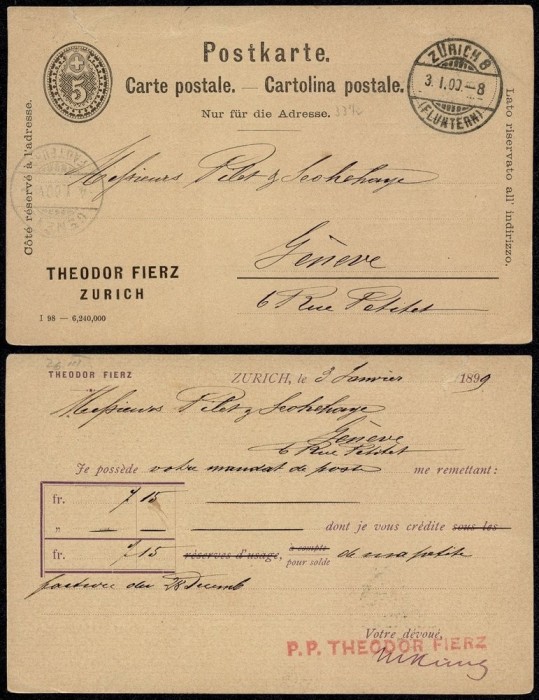 Postkarte.
Carte postale. — Cartolina postale.
Nur für die Adresse.
5
ZÜRICH 8
3. I. 00 – 8
(FLUNTERN)
Côté réservé à l'adresse.
Lato riservato all' indirizzo.
Messieurs Pilet & Sechehaye
Genève
6 Rue Petitot
THEODOR FIERZ
ZURICH
I 98 — 6,240,000
THEODOR FIERZ
ZURICH, le 3 Janvier 1899
Messieurs Pilet & Sechehaye
Genève
6 Rue Petitot
Je possède votre mandat de poste me remettant:
fr. 7 15
" dont je vous crédite sous les
fr. 7 15 réserves d'usage, à compte pour solde de ma petite
facture du 28 Decemb
Votre dévoué,
P.P. THEODOR FIERZ